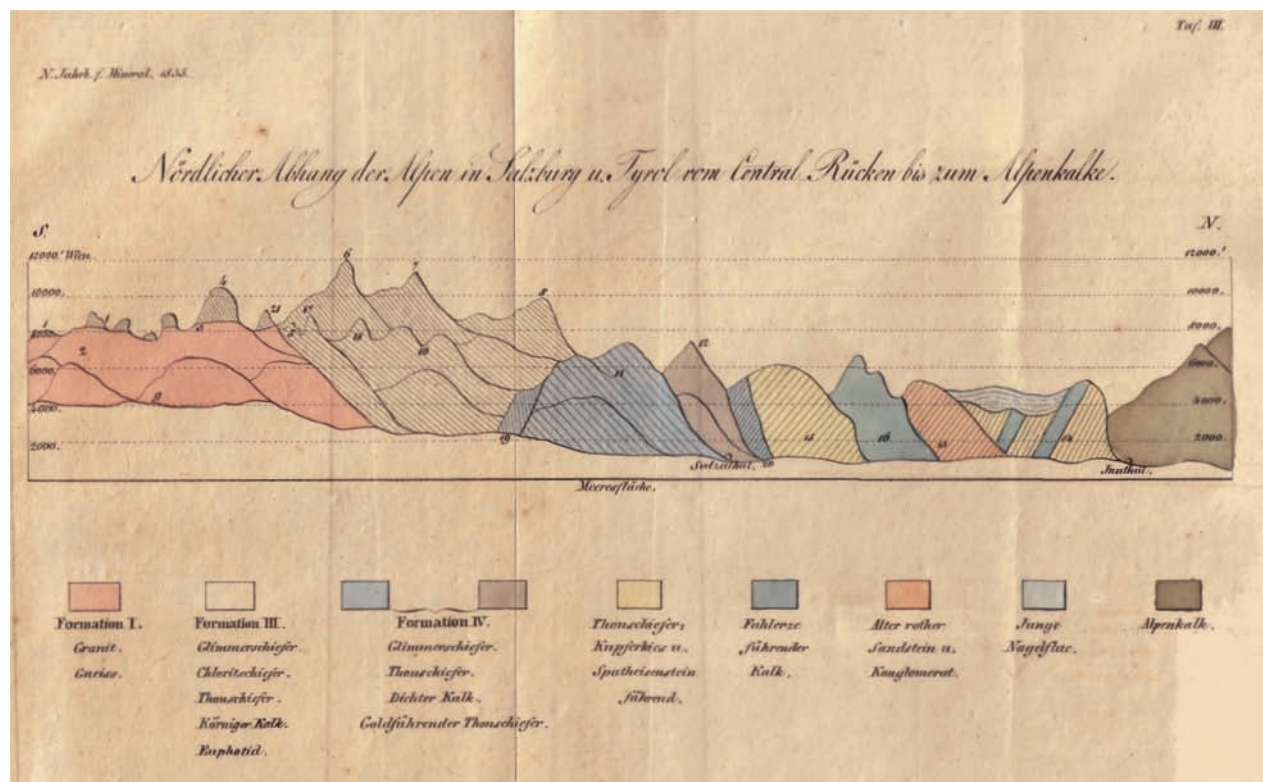 Taf. III.
N. Jahrb. f. Mineral. 1835.
Nördlicher Abhang der Alpen in Salzburg u. Tyrol vom Central Rücken bis zum Alpenkalke.
S.
N.
12000.' Wien
12000.'
10000.
10000.
8000.
8000.
6000.
6000.
4000.
4000.
2000.
2000.
6
7
4
8
1
1
3
21
17
5
18
10
2
9
11
12
19
Salzathal.
20
15
16
13
14
Innthal.
Meeresfläche.
Formation I.
Granit.
Gneiss.
Formation III.
Glimmerschiefer.
Chloritschiefer.
Thonschiefer.
Körniger Kalk.
Euphotid.
Formation IV.
Glimmerschiefer.
Thonschiefer.
Dichter Kalk.
Goldführender Thonschiefer.
Thonschiefer;
Kupferkies u.
Spatheisenstein
führend.
Fahlerze
führender
Kalk.
Alter rother
Sandstein u.
Konglomerat.
Junge
Nagelflue.
Alpenkalk.